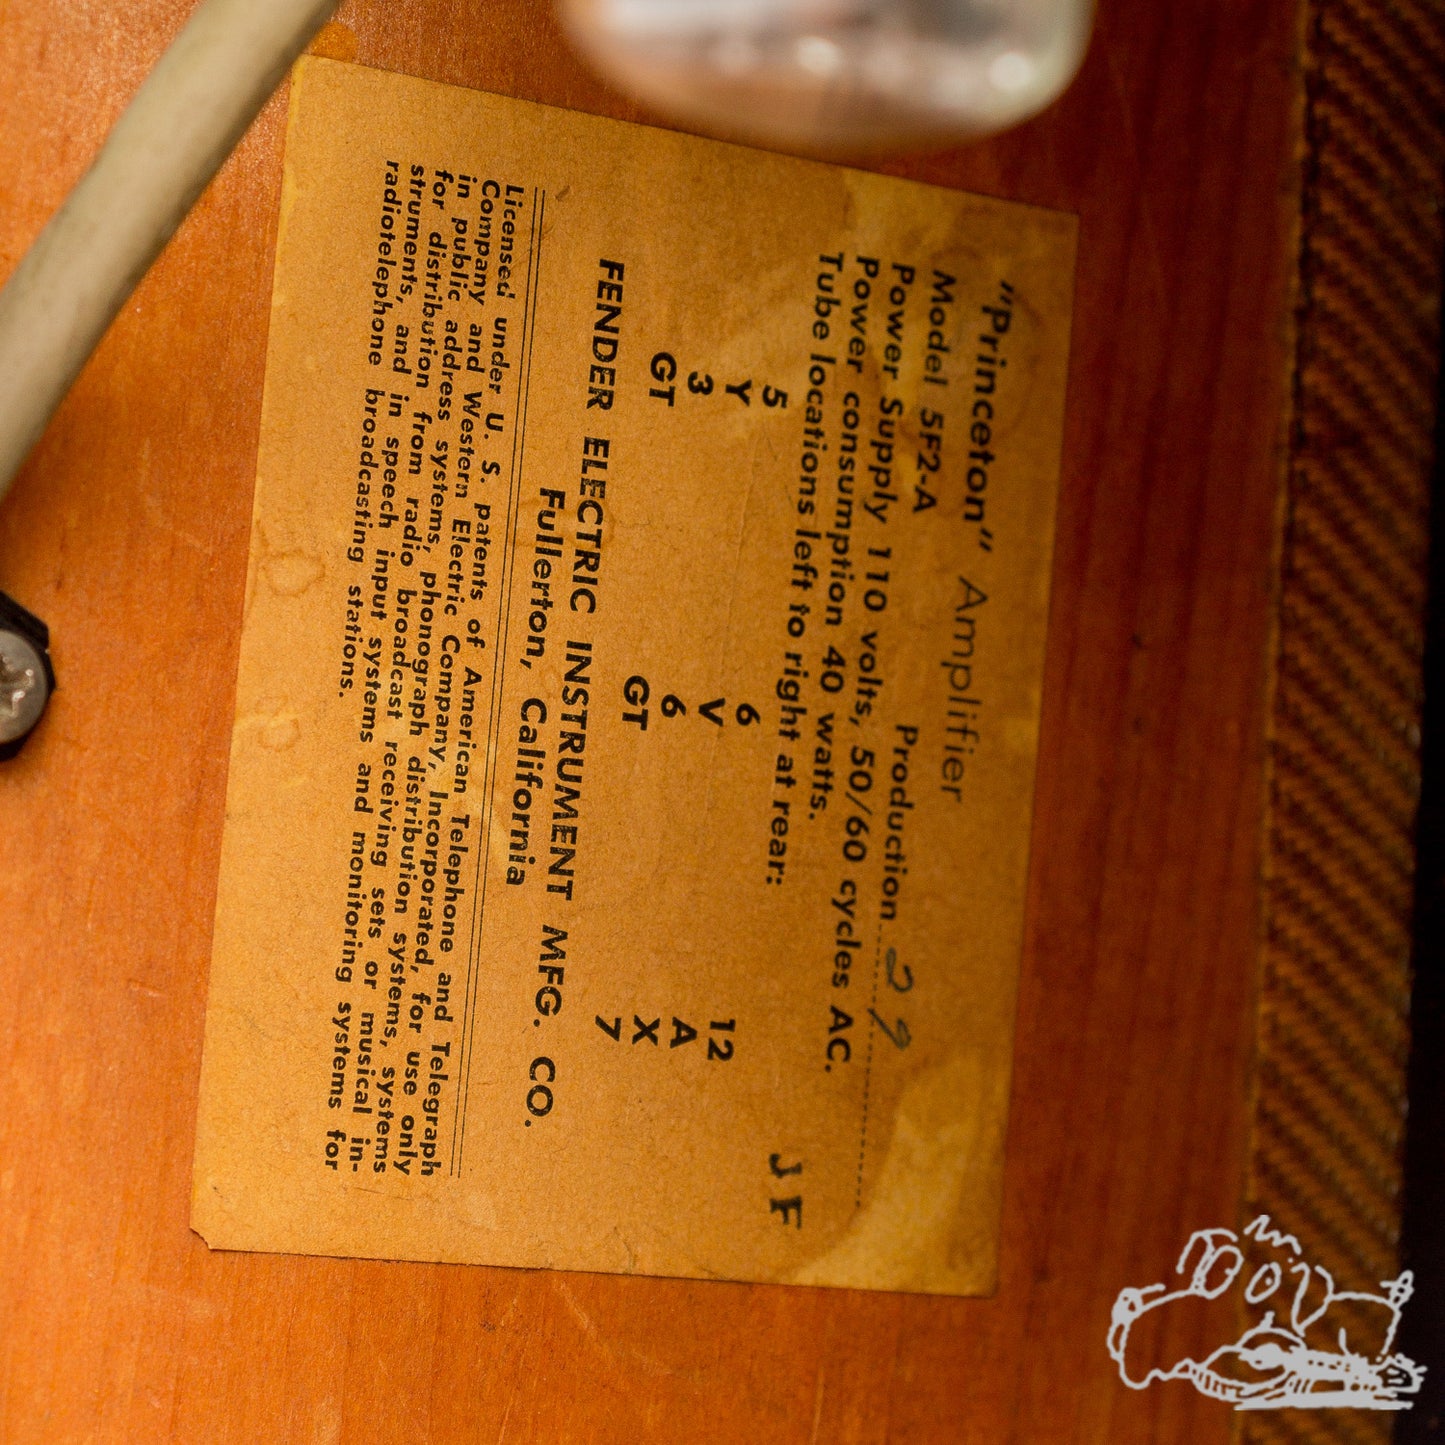 "Princeton" Amplifier
Model 5F2-A Production 29
Power Supply 110 volts, 50/60 cycles AC.
Power consumption 40 watts.
Tube locations left to right at rear:
JF
5 6 12
Y V A
3 6 X
GT GT 7
FENDER ELECTRIC INSTRUMENT MFG. CO.
Fullerton, California
Licensed under U. S. patents of American Telephone and Telegraph
Company and Western Electric Company, Incorporated, for use only
in public address systems, phonograph distribution systems, systems
for distribution from radio broadcast receiving sets or musical in-
struments, and in speech input systems and monitoring systems for
radiotelephone broadcasting stations.